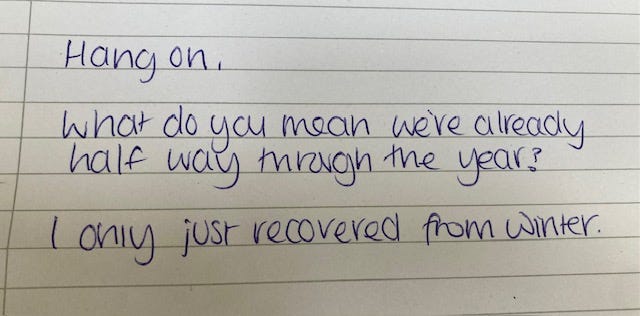 Hang on.
What do you mean we're already
half way through the year?
I only just recovered from winter.